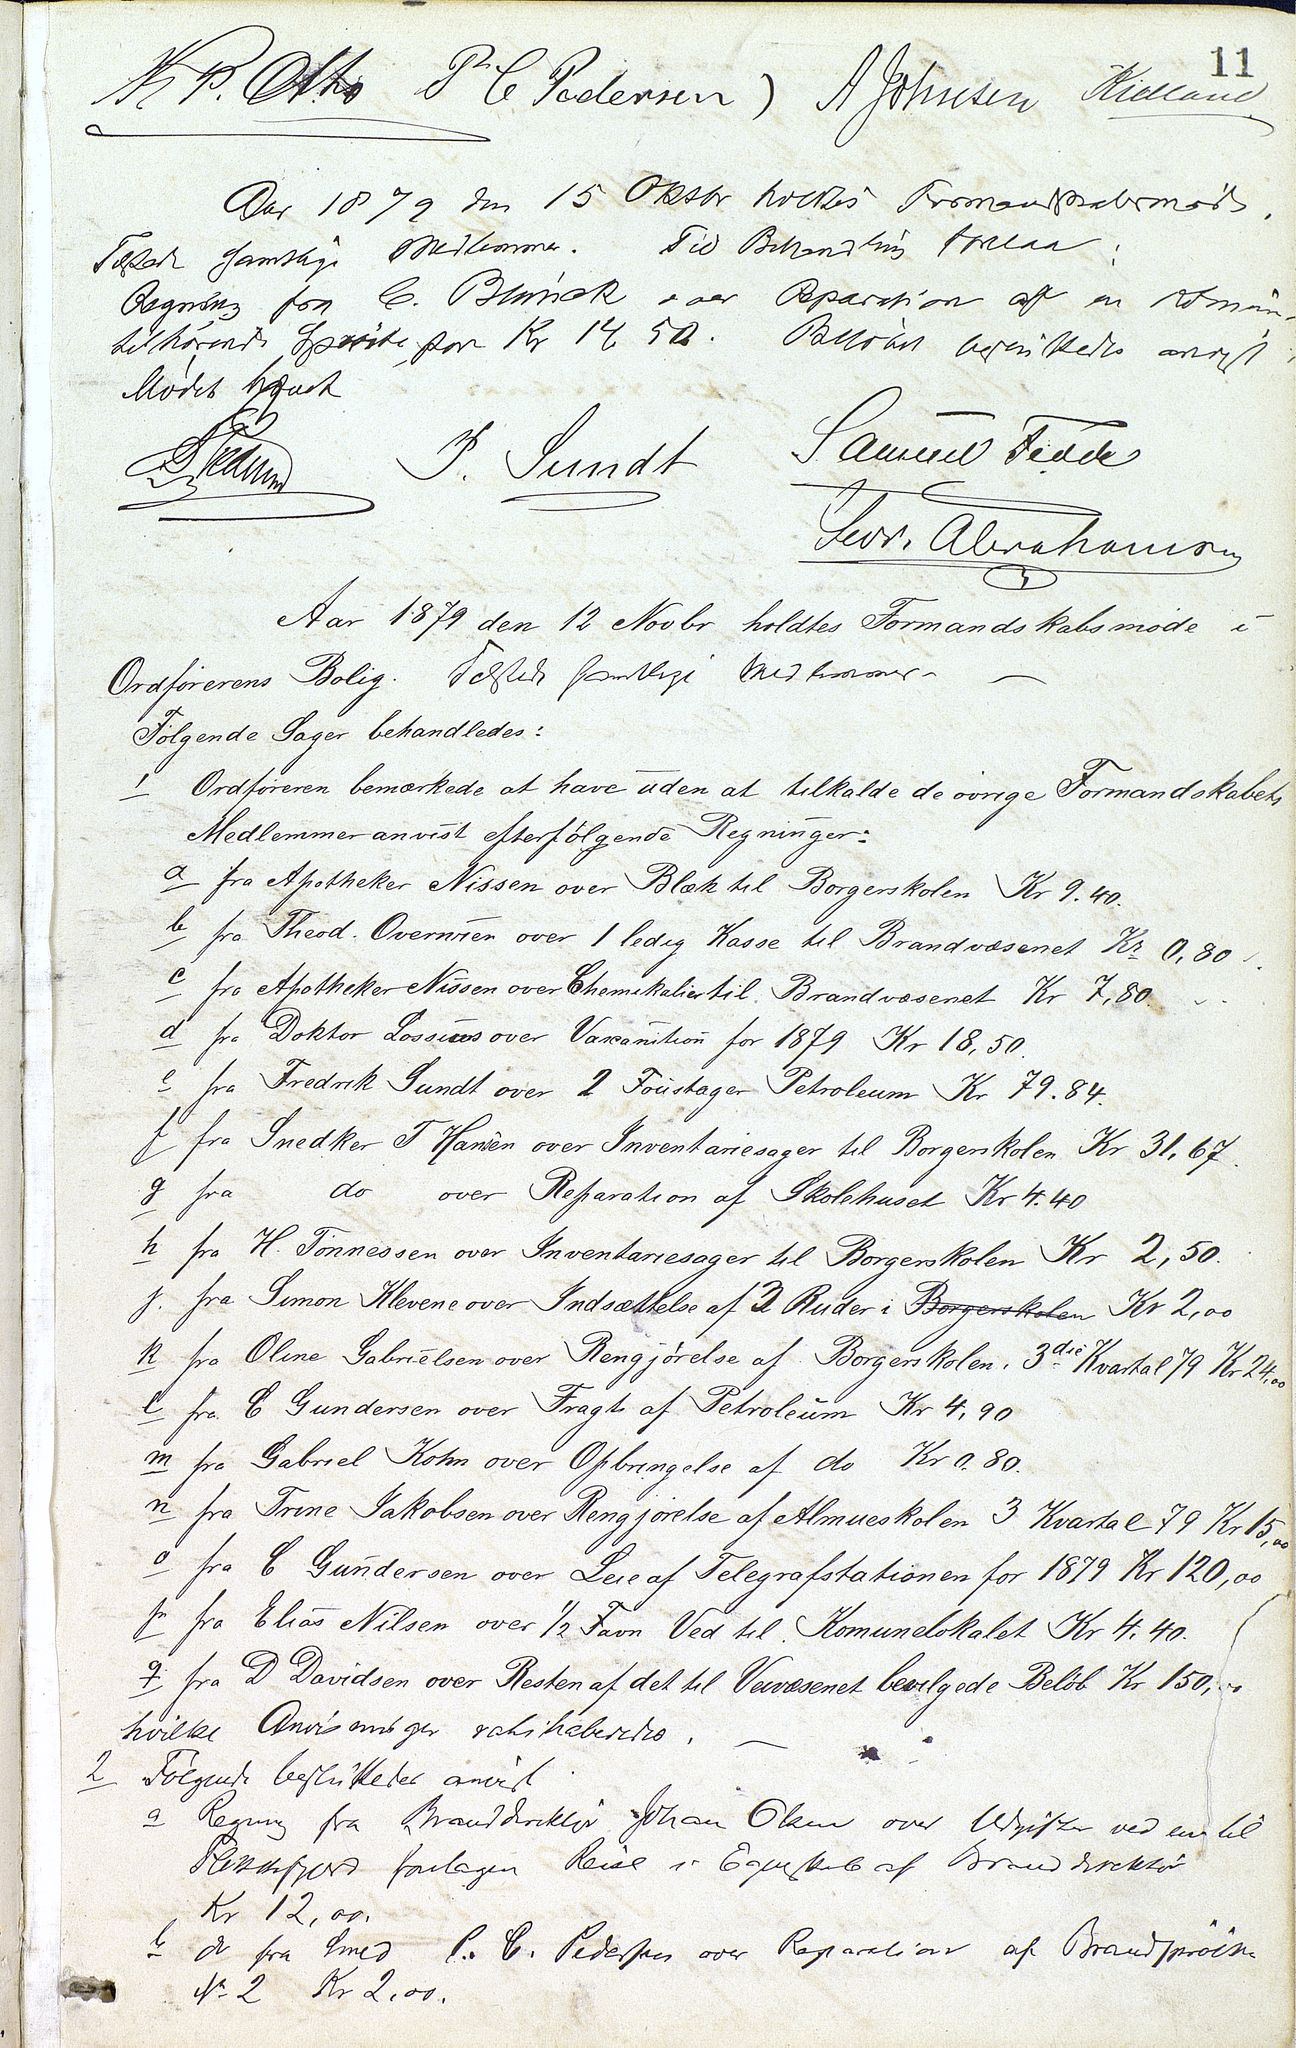 11
P. C Pedersen A Johnsen Kielland
Aar 1879 den 15 Oktbr holdtes Formandskabsmøde.
Tilstede samtlige Medlemmer. Til Behandling forelaa:
Regning fra C. over Reparation af en
tilhørende Sprøite stor Kr 14 50. Beløbet besluttedes anvist
Mødet hævet
P. Sundt Samuel Fedde
Sevr. Abrahamsen
Aar 1879 den 12 Novbr holdtes Formandskabsmøde i
Ordførerens Bolig. Tilstede samtlige Medlemmer -
Følgende Sager behandledes:
1 Ordføreren bemærkede at have uden at tilkalde de øvrige Formandskabets
Medlemmer anvist efterfølgende Regninger:
a fra Apotheker Nissen over Blæk til Borgerskolen Kr 9.40.
b fra Theod. Overwien over 1 ledig Kasse til Brandvæsenet Kr 0,80
c fra Apotheker Nissen over Chemikalier til Brandvæsenet Kr 7,80.
d fra Doktor Lossius over Vaxanition for 1879 Kr 18,50.
e fra Fredrik Sundt over 2 Foustager Petroleum Kr 79.84.
f fra Snedker T Hansen over Inventariesager til Borgerskolen Kr 31,67.
g fra do over Reparation af Skolehuset Kr 4.40
h fra H. Tönnessen over Inventariesager til Borgerskolen Kr 2,50.
j. fra Simon Klevene over Indsættelse af 3 Ruder i Borgerskolen Kr 2,00
k fra Oline Gabrielsen over Rengjørelse af Borgerskolen, 3die Kvartal 79 Kr 24,00
l fra C Gundersen over Fragt af Petroleum Kr 4,90
m fra Gabriel Kohn over Opbringelse af do Kr 0.80.
n fra Trine Jakobsen over Rengjørelse af Almueskolen 3 Kvartal 79 Kr 15,00
o fra C Gundersen over Leie af Telegrafstationen for 1879 Kr 120,00
p fra Elias Nilsen over 1/2 Favn Ved til Komunelokalet Kr 4,40.
q fra D Davidsen over Resten af det til Veivæsenet bevilgede Beløb Kr 150,00
hvilke Anvisninger ratihaberedes.
2 Følgende besluttedes anvist
a Regning fra Branddirektør Johan Olsen over Udgifter ved en til
Flekkefjord foretagen Reise i Egenskab af Branddirektør
Kr 12,00.
b do fra Smed P. C. Pedersen over Reparation af Brandsprøite
No 2 Kr 2,00.